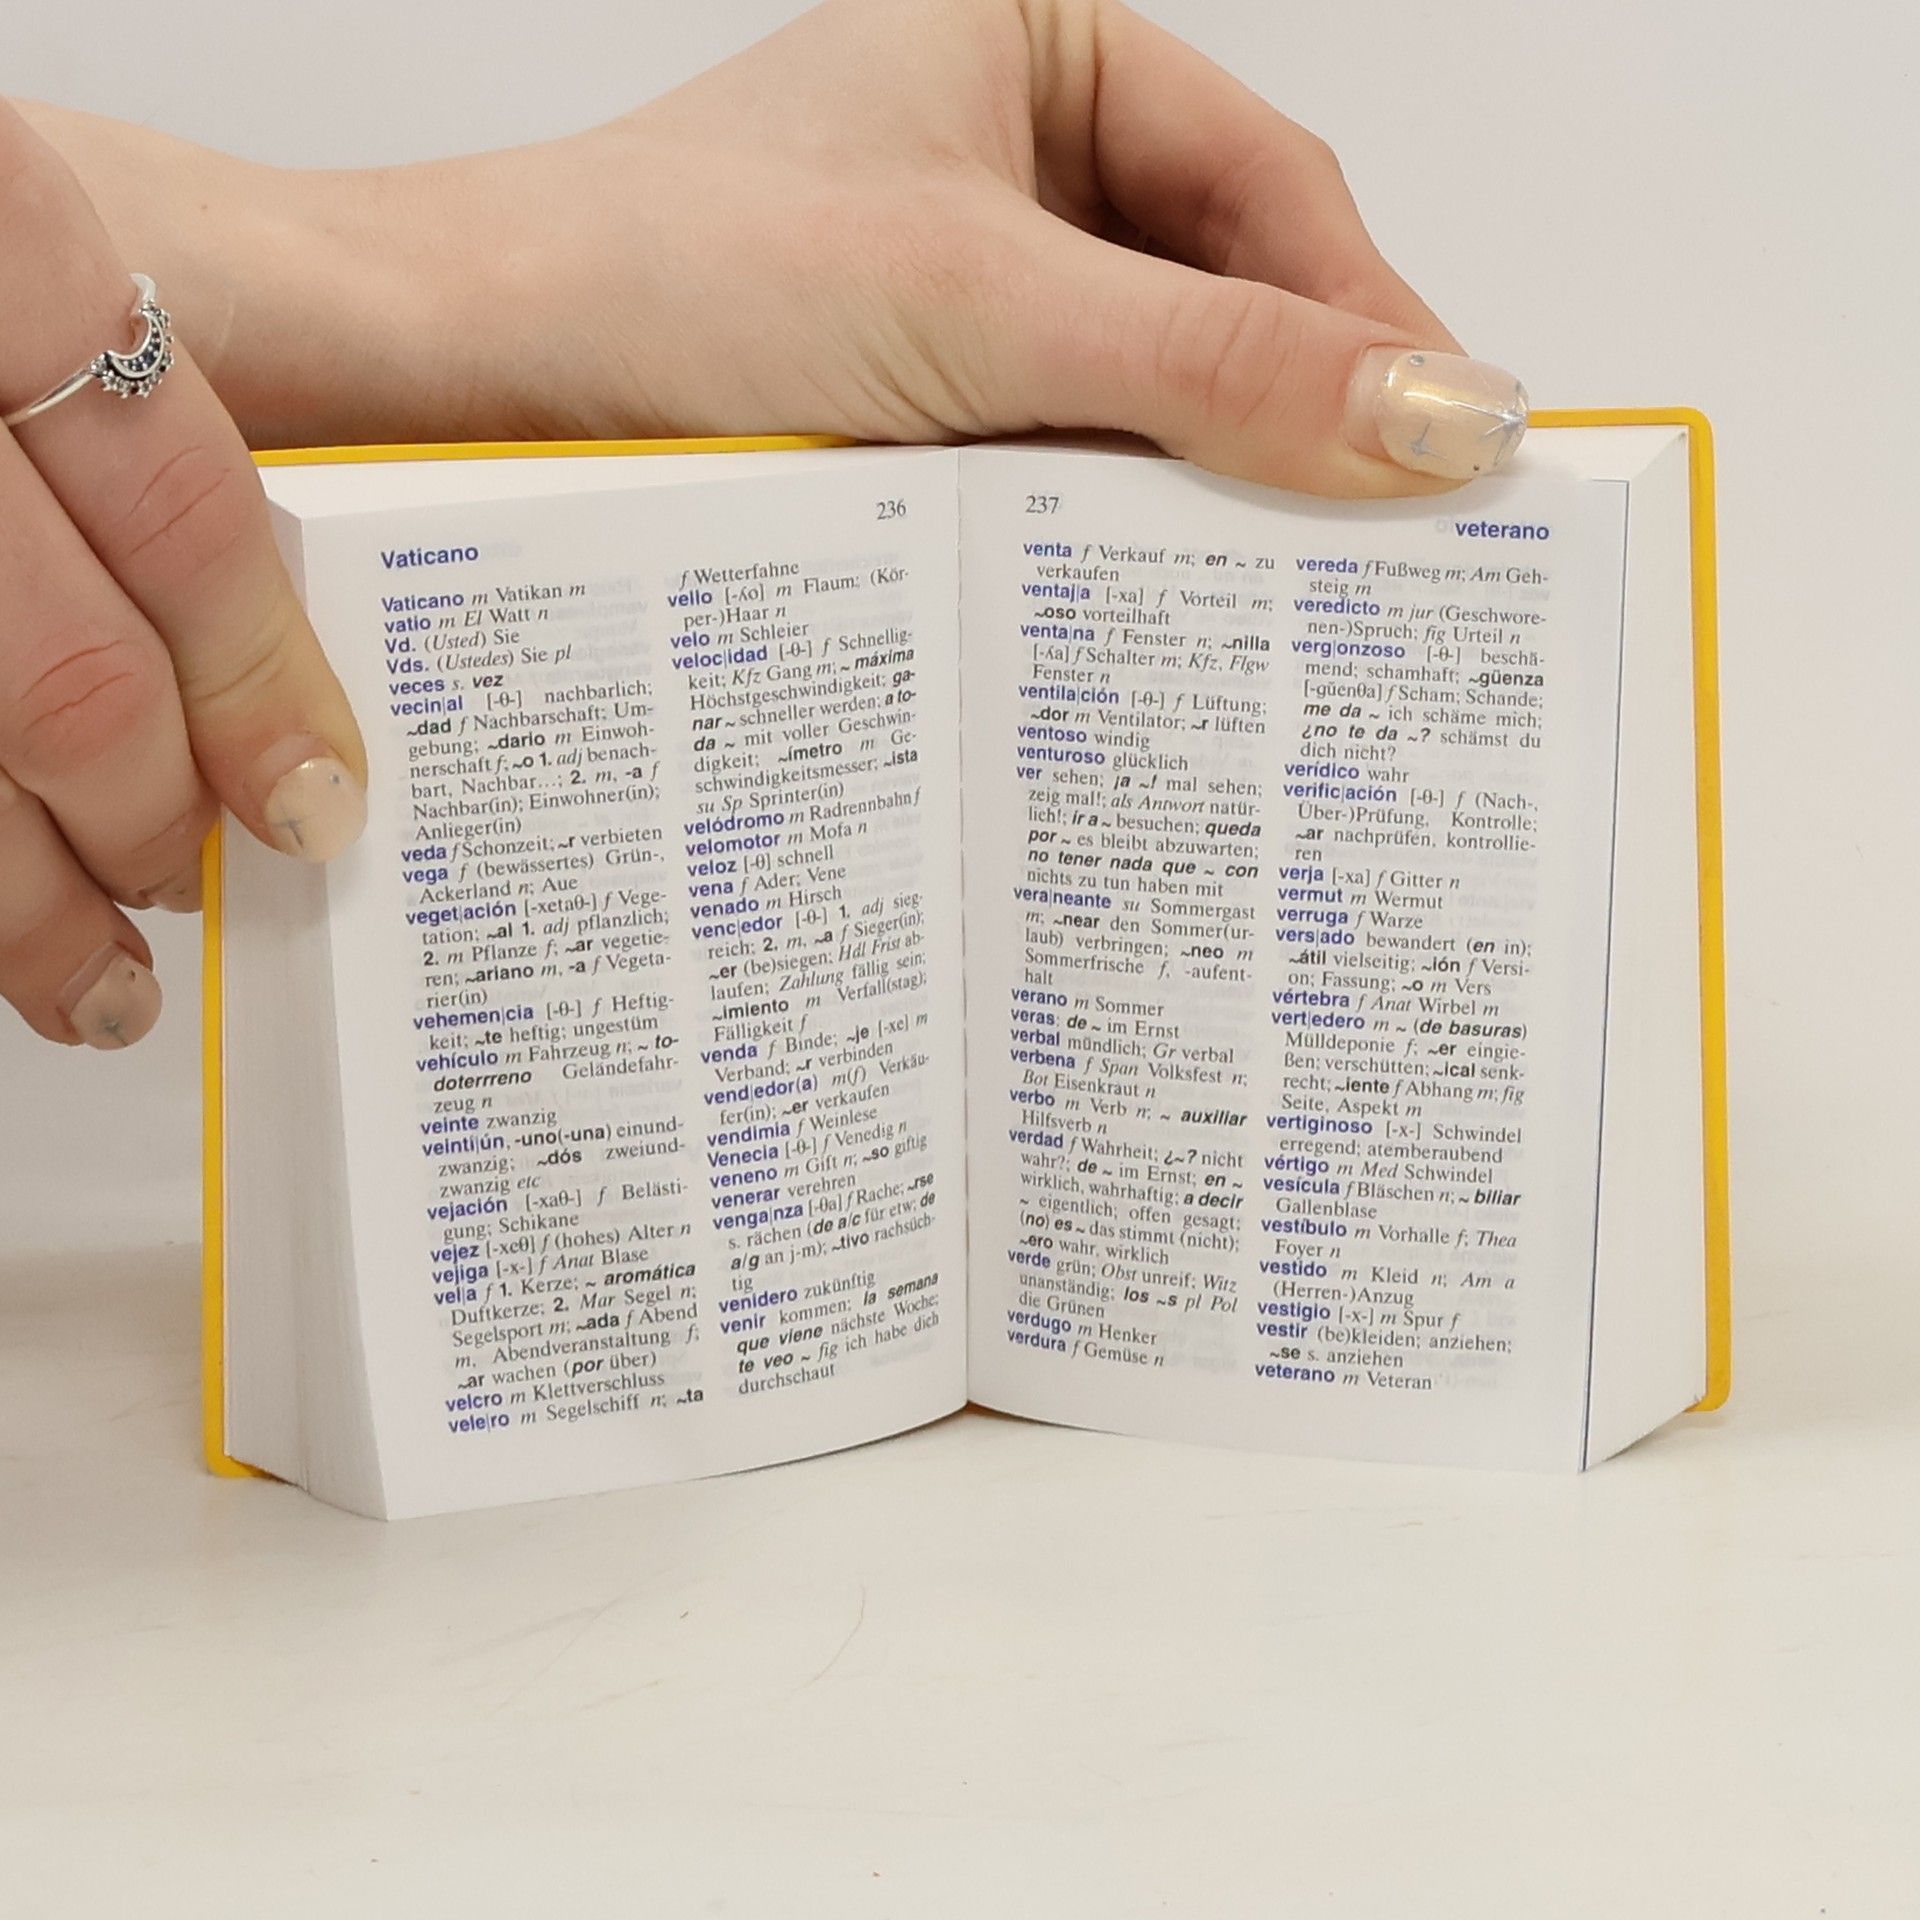 236
Vaticano
Vaticano m Vatikan m
vatio m El Watt n
Vd. (Usted) Sie
Vds. (Ustedes) Sie pl
veces s. vez
vecin|al [-θ-] nachbarlich;
~dad f Nachbarschaft; Um-
gebung; ~dario m Einwoh-
nerschaft f; ~o 1. adj benach-
bart, Nachbar...; 2. m, -a f
Nachbar(in); Einwohner(in);
Anlieger(in)
veda f Schonzeit; ~r verbieten
vega f (bewässertes) Grün-,
Ackerland n; Aue
veget|ación [-xetaθ-] f Vege-
tation; ~al 1. adj pflanzlich;
2. m Pflanze f; ~ar vegetie-
ren; ~ariano m, -a f Vegeta-
rier(in)
vehemen|cia [-θ-] f Heftig-
keit; ~te heftig; ungestüm
vehículo m Fahrzeug n; ~ to-
doterrreno Geländefahr-
zeug n
veinte zwanzig
veinti|ún, -uno(-una) einund-
zwanzig; ~dós zweiund-
zwanzig etc
vejación [-xaθ-] f Belästi-
gung; Schikane
vejez [-xeθ] f (hohes) Alter n
vejiga [-x-] f Anat Blase
vel|a f 1. Kerze; ~ aromática
Duftkerze; 2. Mar Segel n;
Segelsport m; ~ada f Abend
m, Abendveranstaltung f;
~ar wachen (por über)
velcro m Klettverschluss
vele|ro m Segelschiff n; ~ta
f Wetterfahne
vello [-ʎo] m Flaum; (Kör-
per-)Haar n
velo m Schleier
veloc|idad [-θ-] f Schnellig-
keit; Kfz Gang m; ~ máxima
Höchstgeschwindigkeit; ga-
nar ~ schneller werden; a to-
da ~ mit voller Geschwin-
digkeit; ~ímetro m Ge-
schwindigkeitsmesser; ~ista
su Sp Sprinter(in)
velódromo m Radrennbahn f
velomotor m Mofa n
veloz [-θ] schnell
vena f Ader; Vene
venado m Hirsch
venc|edor [-θ-] 1. adj sieg-
reich; 2. m, ~a f Sieger(in);
~er (be)siegen; Hdl Frist ab-
laufen; Zahlung fällig sein;
~imiento m Verfall(stag);
Fälligkeit f
venda f Binde; ~je [-xe] m
Verband; ~r verbinden
vend|edor(a) m(f) Verkäu-
fer(in); ~er verkaufen
vendimia f Weinlese
Venecia [-θ-] f Venedig n
veneno m Gift n; ~so giftig
venerar verehren
venga|nza [-θa] f Rache; ~rse
s. rächen (de a/c für etw; de
a/g an j-m); ~tivo rachsüch-
tig
venidero zukünftig
venir kommen; la semana
que viene nächste Woche;
te veo ~ fig ich habe dich
durchschaut
237
veterano
venta f Verkauf m; en ~ zu
verkaufen
ventaj|a [-xa] f Vorteil m;
~oso vorteilhaft
venta|na f Fenster n; ~nilla
[-ʎa] f Schalter m; Kfz, Flgw
Fenster n
ventila|ción [-θ-] f Lüftung;
~dor m Ventilator; ~r lüften
ventoso windig
venturoso glücklich
ver sehen; ¡a ~! mal sehen;
zeig mal!; als Antwort natür-
lich!; ir a ~ besuchen; queda
por ~ es bleibt abzuwarten;
no tener nada que ~ con
nichts zu tun haben mit
vera|neante su Sommergast
m; ~near den Sommer(ur-
laub) verbringen; ~neo m
Sommerfrische f, -aufent-
halt
verano m Sommer
veras: de ~ im Ernst
verbal mündlich; Gr verbal
verbena f Span Volksfest n;
Bot Eisenkraut n
verbo m Verb n; ~ auxiliar
Hilfsverb n
verdad f Wahrheit; ¿~? nicht
wahr?; de ~ im Ernst; en ~
wirklich, wahrhaftig; a decir
~ eigentlich; offen gesagt;
(no) es ~ das stimmt (nicht);
~ero wahr, wirklich
verde grün; Obst unreif; Witz
unanständig; los ~s pl Pol
die Grünen
verdugo m Henker
verdura f Gemüse n
vereda f Fußweg m; Am Geh-
steig m
veredicto m jur (Geschwore-
nen-)Spruch; fig Urteil n
verg|onzoso [-θ-] beschä-
mend; schamhaft; ~güenza
[-gŭenθa] f Scham; Schande;
me da ~ ich schäme mich;
¿no te da ~? schämst du
dich nicht?
verídico wahr
verific|ación [-θ-] f (Nach-,
Über-)Prüfung, Kontrolle;
~ar nachprüfen, kontrollie-
ren
verja [-xa] f Gitter n
vermut m Wermut
verruga f Warze
vers|ado bewandert (en in);
~átil vielseitig; ~ión f Versi-
on; Fassung; ~o m Vers
vértebra f Anat Wirbel m
vert|edero m ~ (de basuras)
Mülldeponie f; ~er eingie-
ßen; verschütten; ~ical senk-
recht; ~iente f Abhang m; fig
Seite, Aspekt m
vertiginoso [-x-] Schwindel
erregend; atemberaubend
vértigo m Med Schwindel
vesícula f Bläschen n; ~ biliar
Gallenblase
vestíbulo m Vorhalle f; Thea
Foyer n
vestido m Kleid n; Am a
(Herren-)Anzug
vestigio [-x-] m Spur f
vestir (be)kleiden; anziehen;
~se s. anziehen
veterano m Veteran